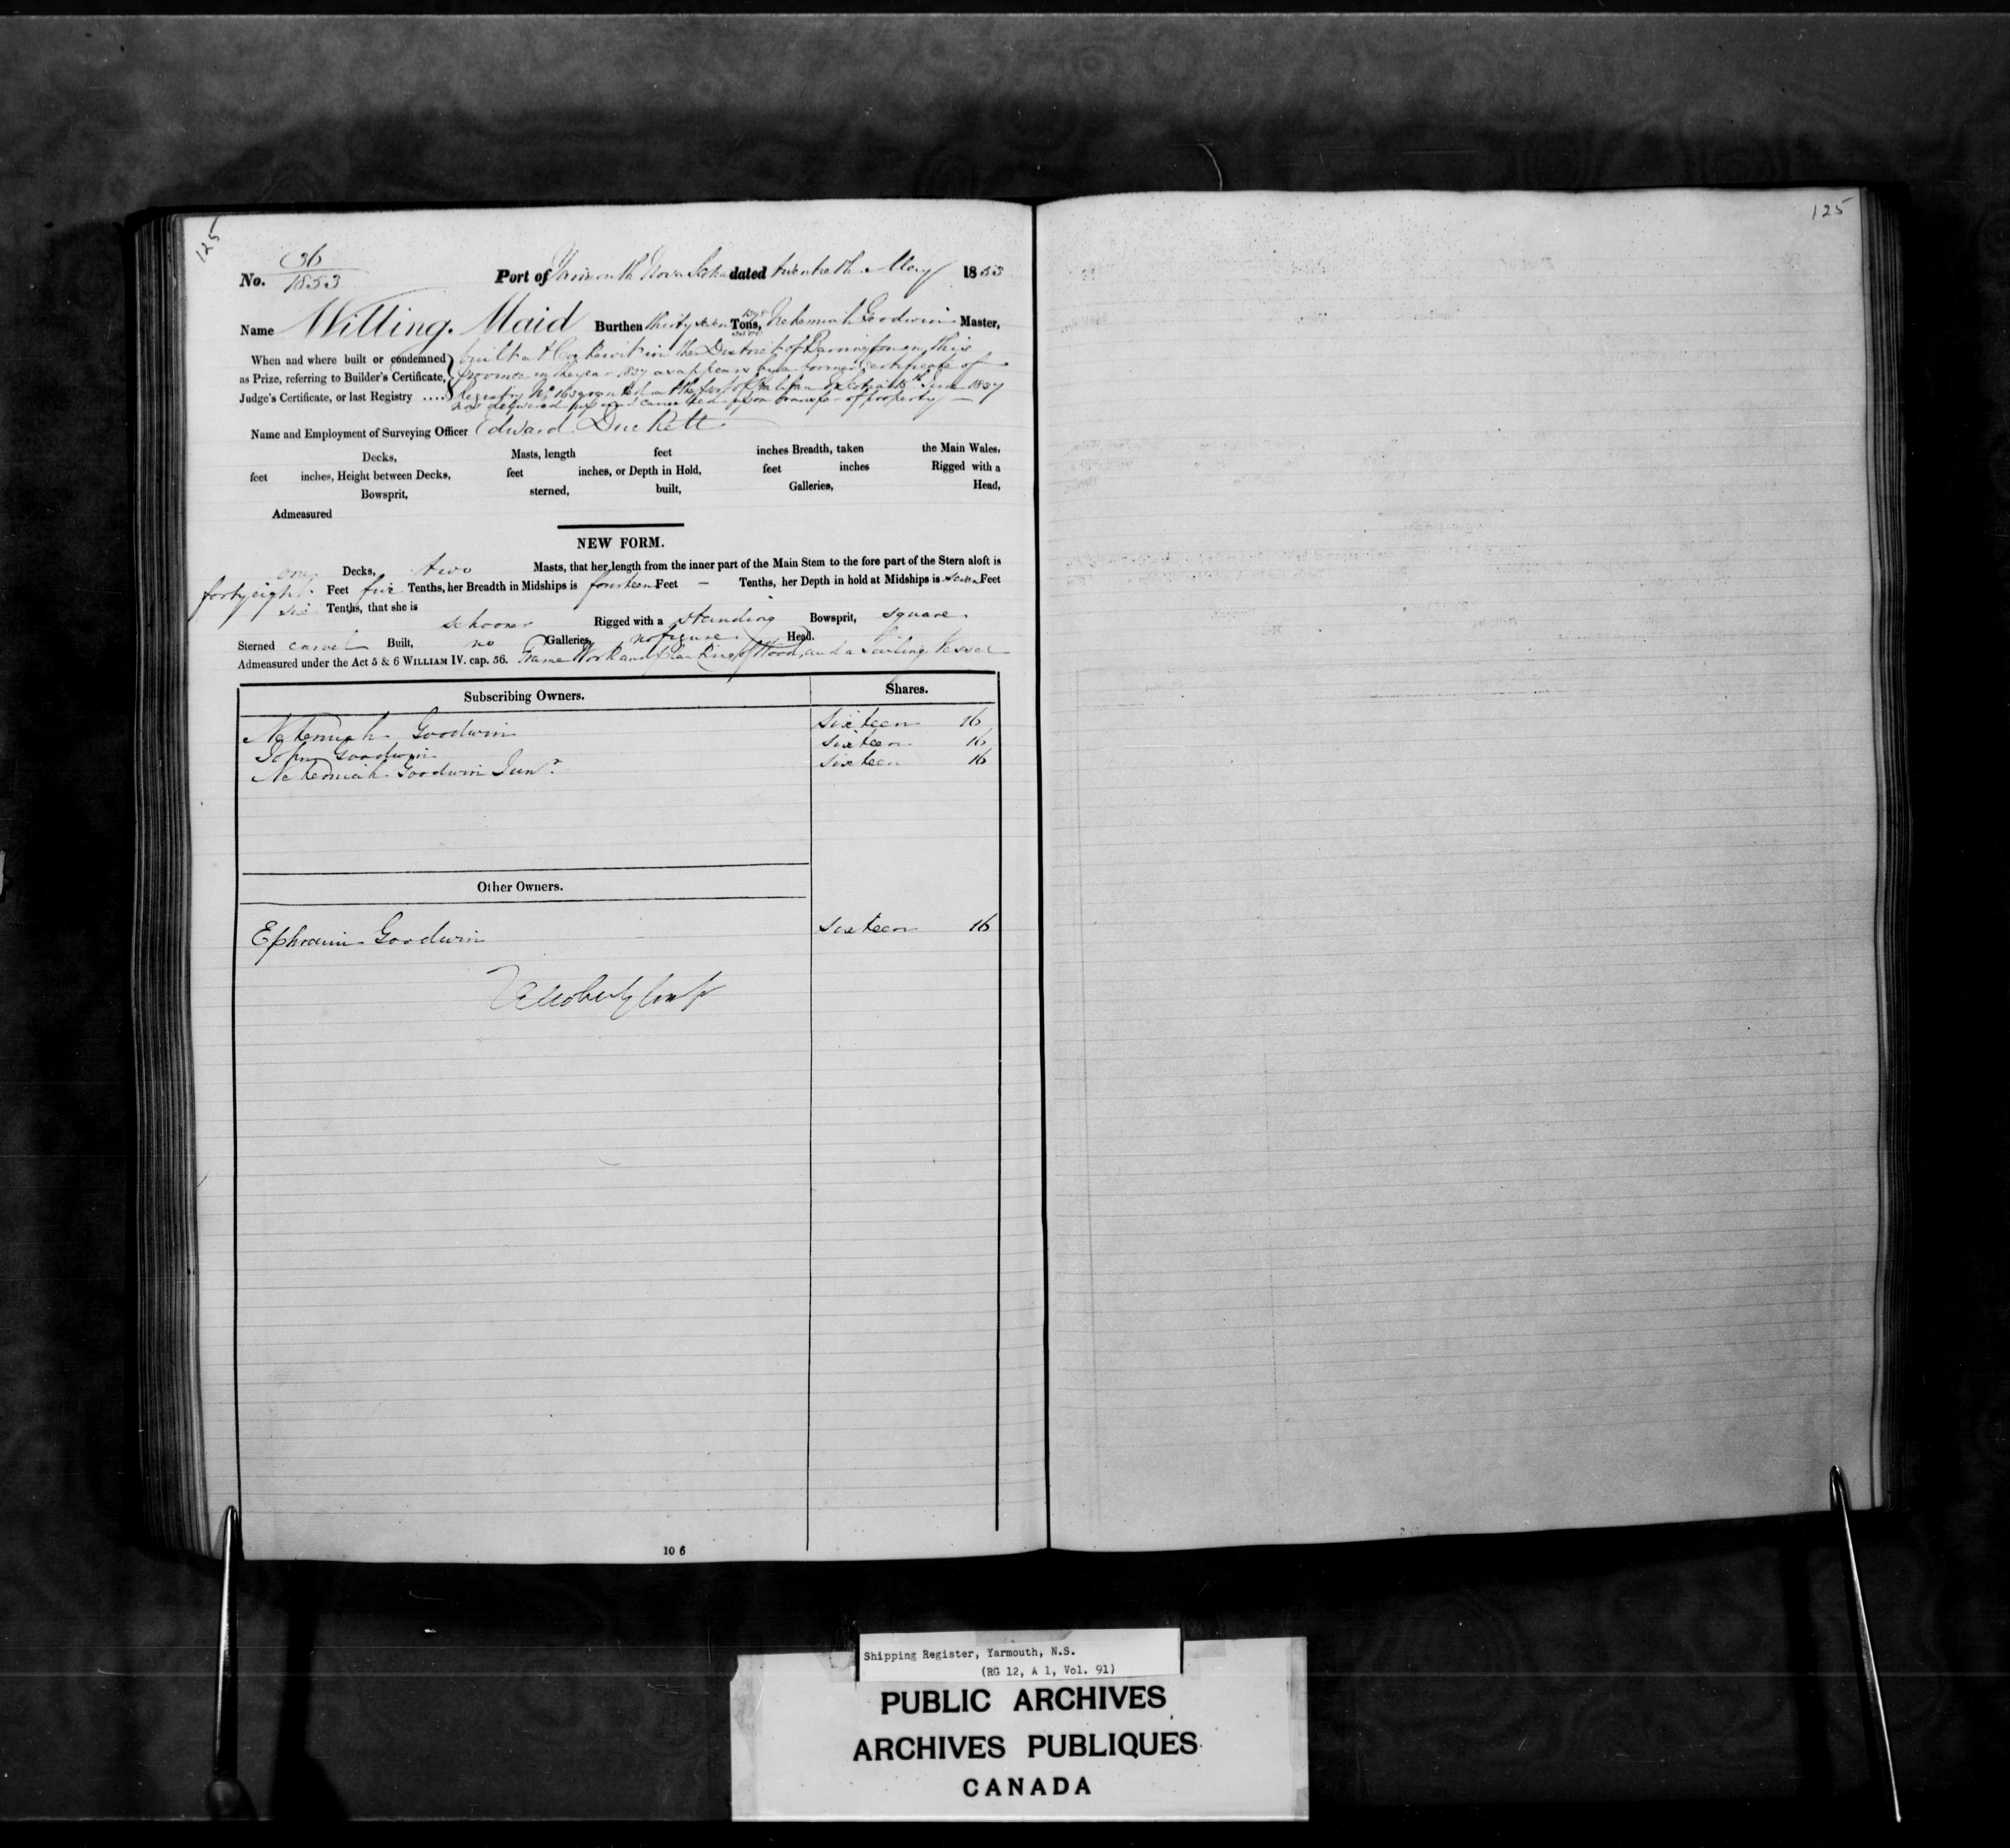 125
125
No. 36/1853 Port of Yarmouth Nova Scotia dated twentieth May 1853
Name Willing Maid Burthen thirty seven Tons, Nehemiah Goodwin Master,
When and where built or condemned as Prize, referring to Builder's Certificate, Judge's Certificate, or last Registry ....
built at in the District of Barrington in this
Province in the year 1837 as appears by a former certificate of
Registry No. 163 granted at the port of Halifax June 1837
now delivered up and cancelled upon transfer of property
Name and Employment of Surveying Officer Edward Duckett
Decks, Masts, length feet inches Breadth, taken the Main Wales,
feet inches, Height between Decks, feet inches, or Depth in Hold, feet inches Rigged with a
Bowsprit, sterned, built, Galleries, Head,
Admeasured
NEW FORM.
one Decks, two Masts, that her length from the inner part of the Main Stem to the fore part of the Stern aloft is
forty eight Feet five Tenths, her Breadth in Midships is fourteen Feet – Tenths, her Depth in hold at Midships is seven Feet
six Tenths, that she is schooner Rigged with a standing Bowsprit, square
Sterned carvel Built, no Galleries, no figure Head.
Admeasured under the Act 5 & 6 WILLIAM IV. cap. 56. Frame Work and Planking of Wood, and a Sailing Vessel
Subscribing Owners. Shares.
Nehemiah Goodwin Sixteen 16
John Goodwin Sixteen 16
Nehemiah Goodwin Junr. Sixteen 16
Other Owners.
Ephraim Goodwin Sixteen 16
10 6
Shipping Register, Yarmouth, N.S.
(RG 12, A 1, Vol. 91)
PUBLIC ARCHIVES
ARCHIVES PUBLIQUES
CANADA